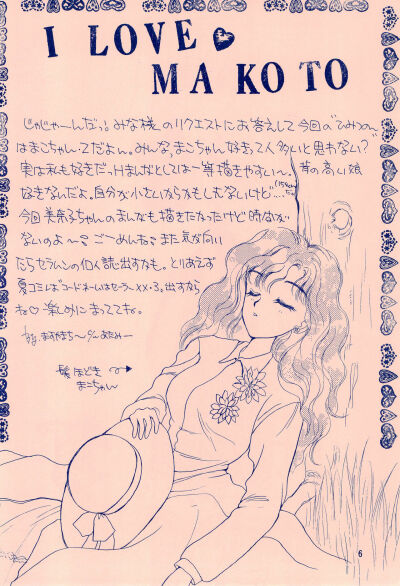 I LOVE♥
MAKOTO
じゃじゃーんだっ!!みな様のリクエストにお答えして今回の"ひみつの〜"
はまこちゃんってだよん。みんな、まこちゃん好きって人多いと思わない?
実は私も好きだっHまんがとしては一等描きやすいし。背の高い娘
好きなんだよ。自分が小さいからかもしんないけど…(151cmだっ)
今回美奈子ちゃんのまんがも描きたかったけど時間が
ないのよ〜 ごーめんね。また気が向い
たらセラムンのHイ誌出すかも。とりあえず
夏コミには"コードネームはセーラーxx・3"出すから
ね♡楽しみにまっててね。
髪ほどき
まこちゃん
6